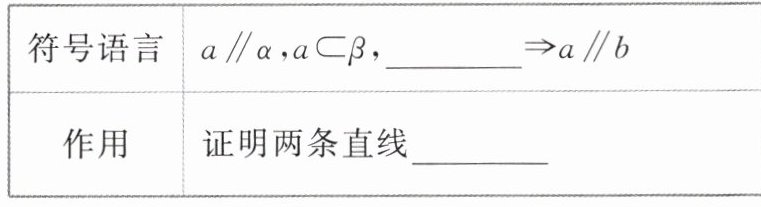 符号语言 a∥α,a⊂β,________⇒a∥b
作用 证明两条直线________